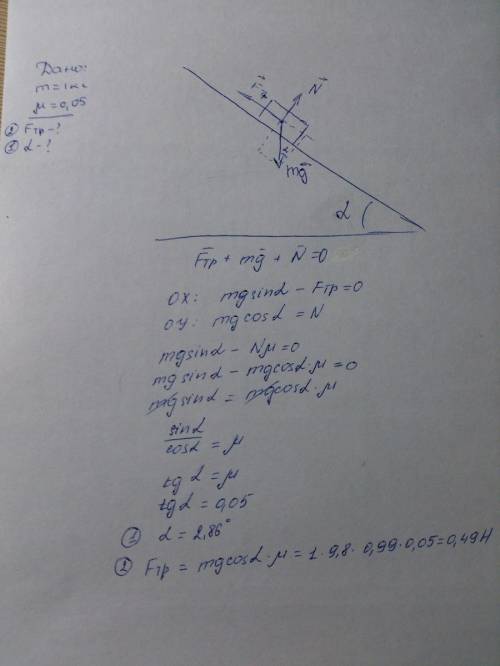 Дано:
m=1кг
μ=0,05
② Fтр-?
① α-?
F⃗тр
N⃗
mg⃗
α
F̄тр + mḡ + N̄ = 0
OX: mgsinα - Fтр=0
OY: mgcosα = N
mgsinα - Nμ=0
mgsinα - mgcosα·μ=0
mgsinα = mgcosα·μ
sinα/cosα = μ
tgα=μ
tgα=0,05
① α=2,86°
② Fтр = mgcosα·μ = 1·9,8·0,99·0,05=0,49Н